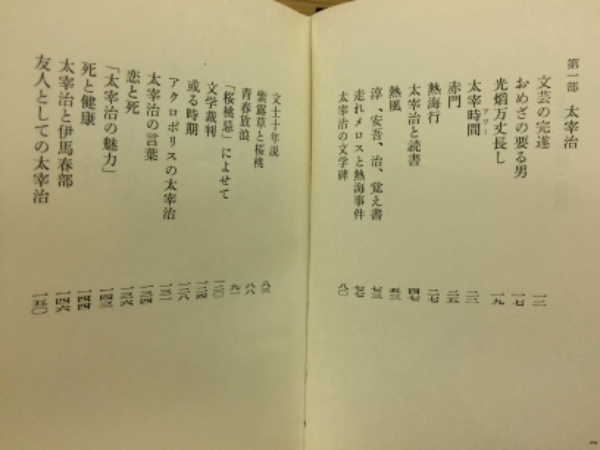 第一部 太宰治
文芸の完遂 一二
おめざの要る男 一七
光焔万丈長し 一九
太宰時間 アワー 二三
赤門 二五
熱海行 二七
太宰治と読書 四七
熱風 五三
淳、安吾、治、覚え書 七三
走れメロスと熱海事件 七七
太宰治の文学碑 八〇
文士十年説 八三
紫露草と桜桃 八八
青春放浪 九一
「桜桃忌」によせて 一二〇
文学裁判 一二四
或る時期 一二八
アクロポリスの太宰治 一三一
太宰治の言葉 一三四
恋と死 一三六
「太宰治の魅力」 一四三
死と健康 一四四
太宰治と伊馬春部 一四六
友人としての太宰治 一五〇